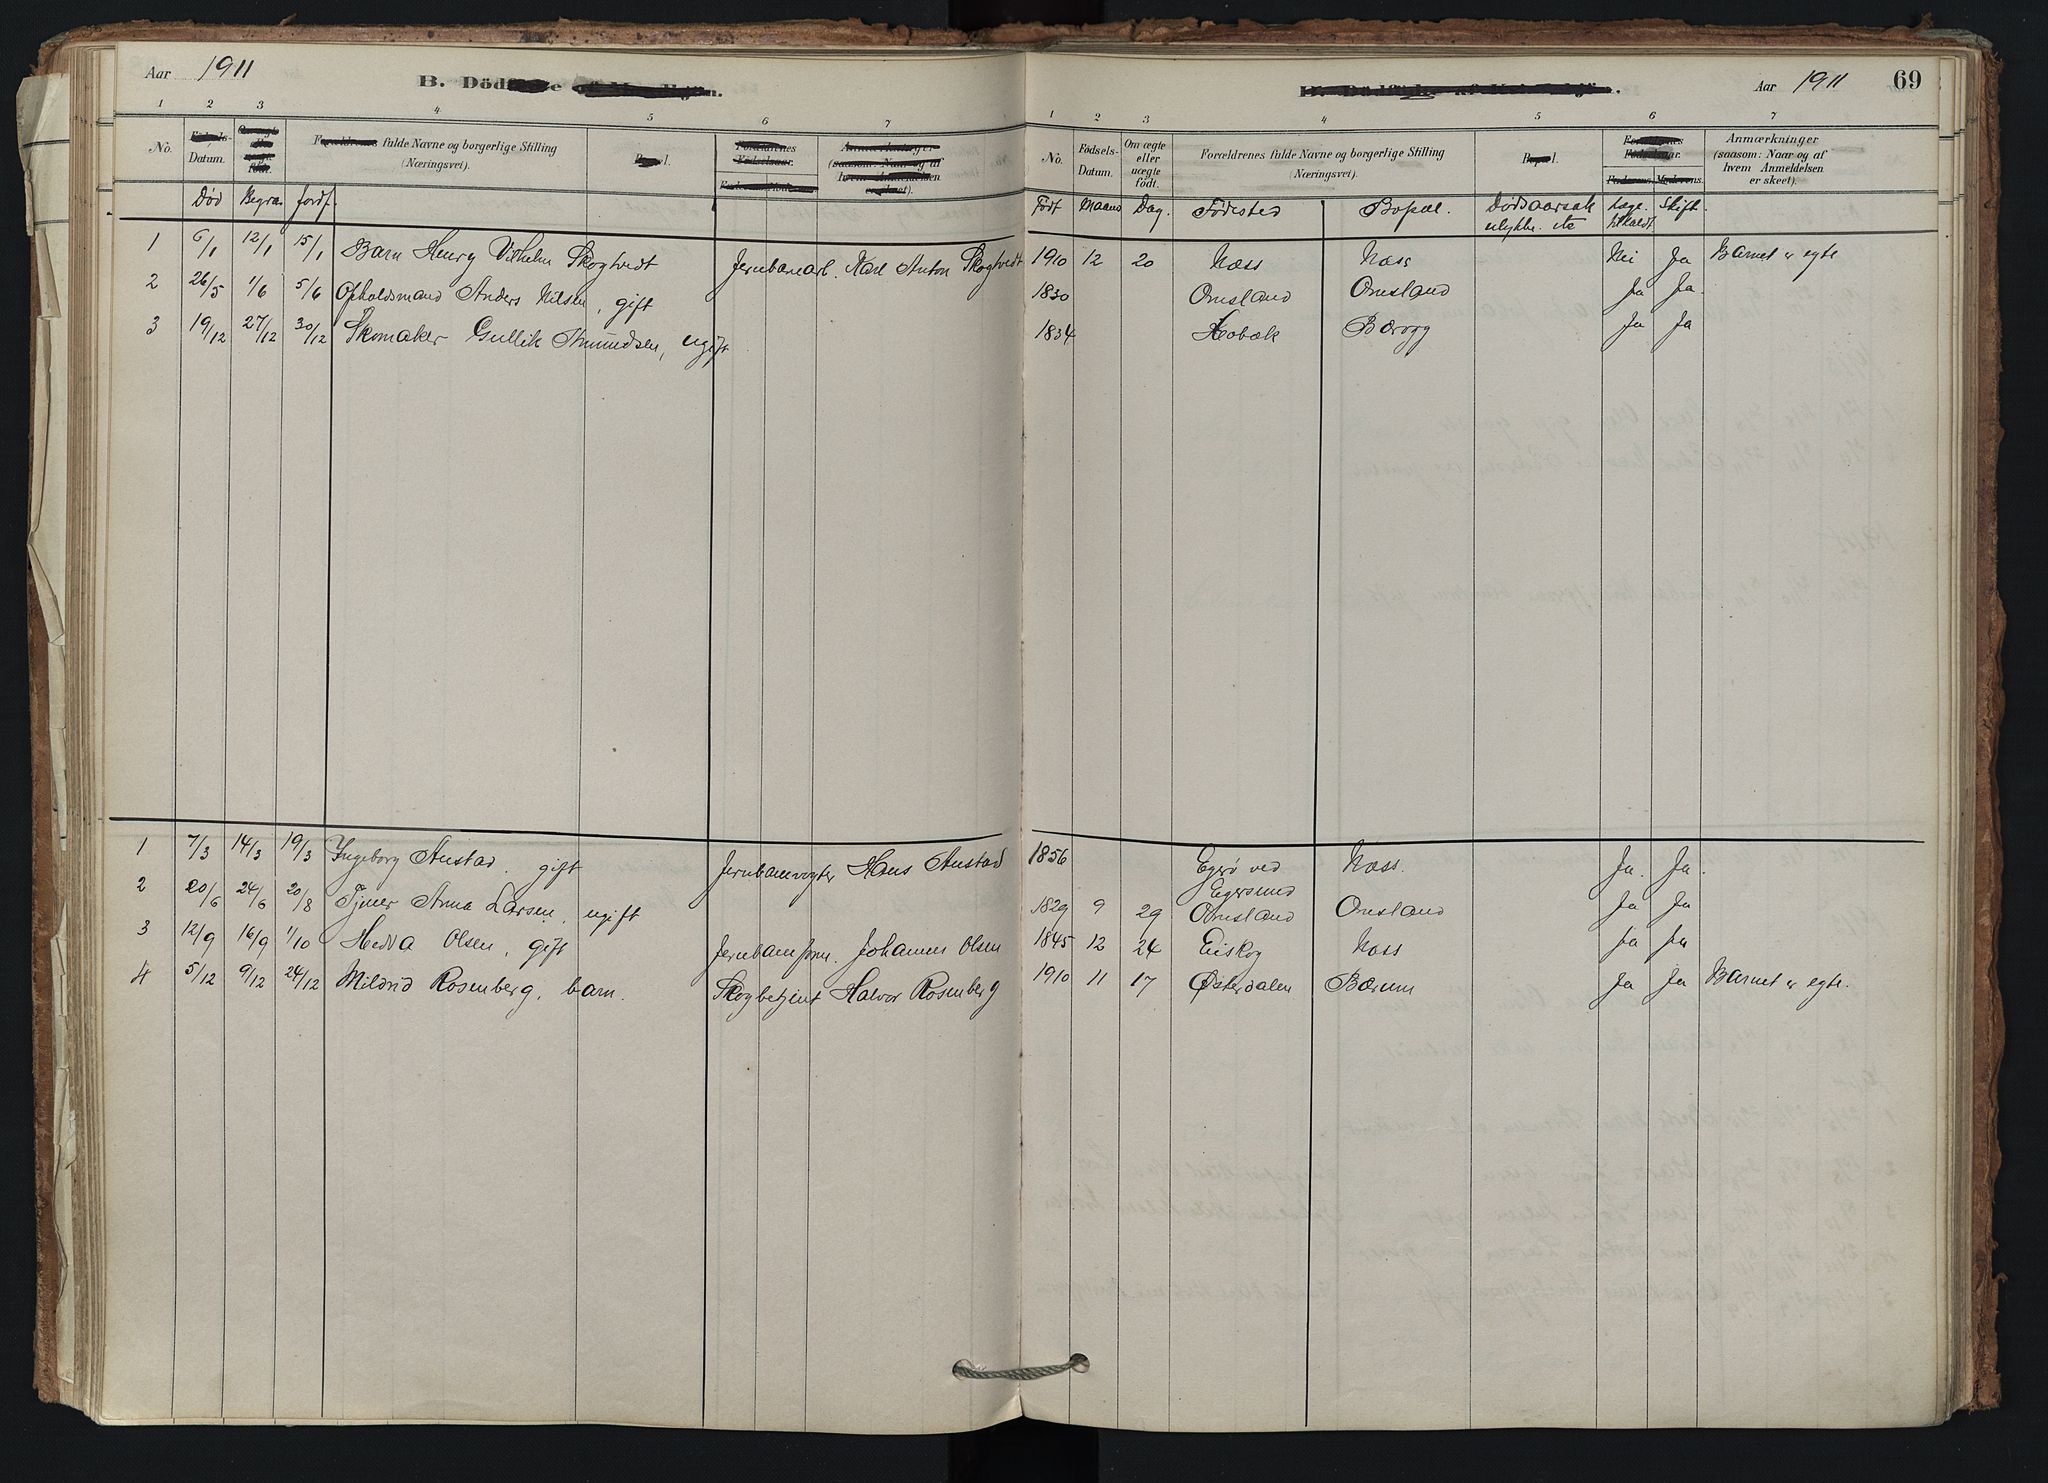 Aar 1911
B. Död
Aar 1911 69
1 2 3 4 5 6 7
1 2 3 4 5 6 7
No. Datum. fulde Navne og borgerlige Stilling (Næringsvei).
No. Födsels-Datum. Om ægte eller uægte födt. Forældrenes fulde Navne og borgerlige Stilling (Næringsvei). Anmærkninger (saasom: Naar og af hvem Anmeldelsen er skeet).
Død Begra. Jordf.
Født Maaned Dag. Fødested Bopæl. Dødsaarsak ulykke. etc Læge tilkaldt Skift.
1 6/1 12/1 15/1 Barn Henry Vilhelm Skogtvedt Jernbanearb. Karl Anton Skogtvedt 1910 12 20 Næss Næss Nei Ja Barnet er egte
2 26/5 1/6 5/6 Opholdsmand Anders Nilsen, gift 1830 Omsland Omsland Ja Ja.
3 19/12 27/12 30/12 Skomaker Gullik Amundsen, ugift 1834 Ja Ja
1 7/3 14/3 19/3 Ingeborg Austad, gift Jernbanevogter Hans Austad 1856 Egerø ved Egersund Næss. Ja. Ja.
2 20/6 24/6 20/8 Tjener Anna Larsen, ugift 1829 9 29 Omsland Omsland Ja Ja
3 12/9 16/9 1/10 Hedda Olsen, gift Jernbaneform. Johannes Olsen 1845 12 24 Eiskog Næss Ja Ja
4 5/12 9/12 24/12 Mildrid Rosenberg, barn. Skogbetjent Halvor Rosenberg 1910 11 17 Østerdalen Bærum Ja Ja Barnet er egte.